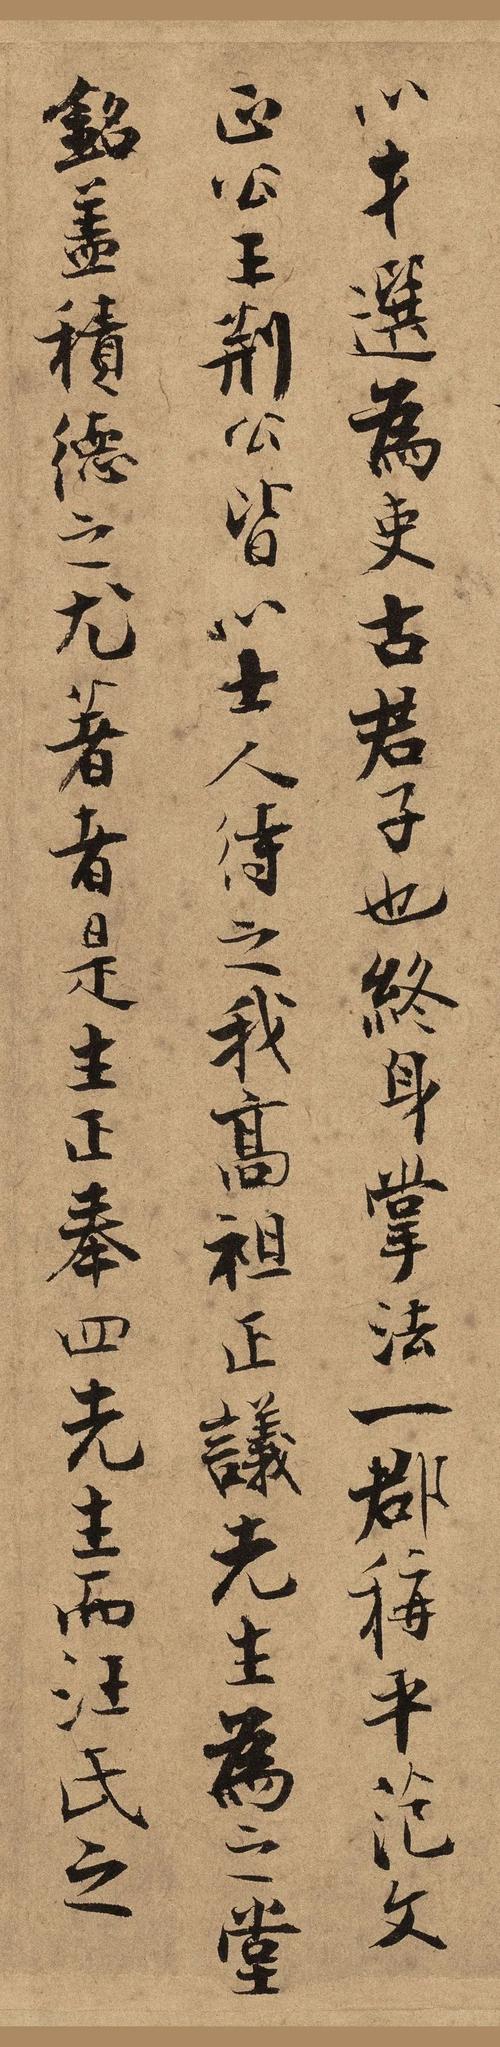 以才選為吏古君子也終身掌法一郡稱平范文
正公王荆公皆以士人待之我高祖正議先生為之堂
銘盖積德之尤著者是生正奉四先生而汪氏之